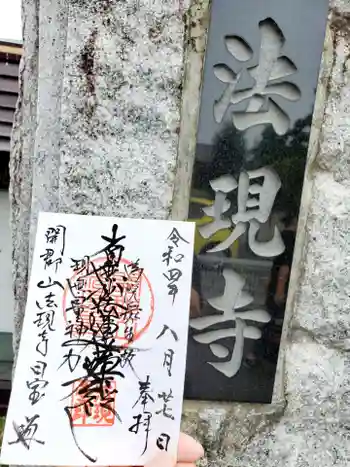 法現寺
令和四年 八月廿七日
奉拝
南無妙法蓮華経
現無量神力
開郡山法現寺日宝